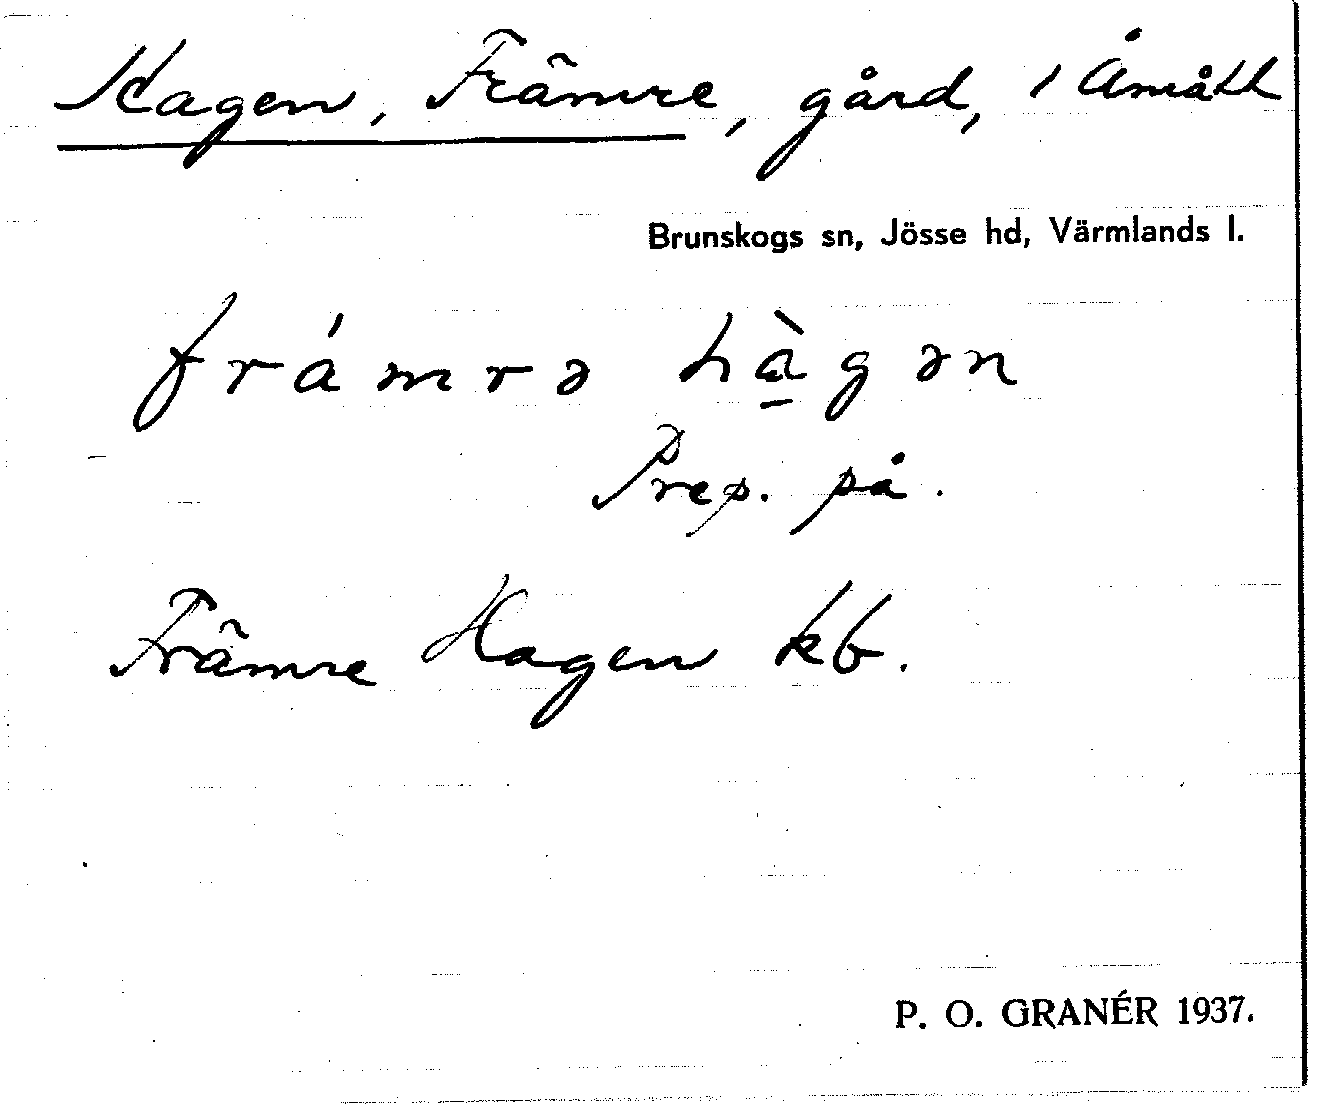 Hagen, Främre, gård, i Åmått
Brunskogs sn, Jösse hd, Värmlands l.
frámrə hà̱gən
Prep. på.
Främre Hagen kb.
P. O. GRANÉR 1937.